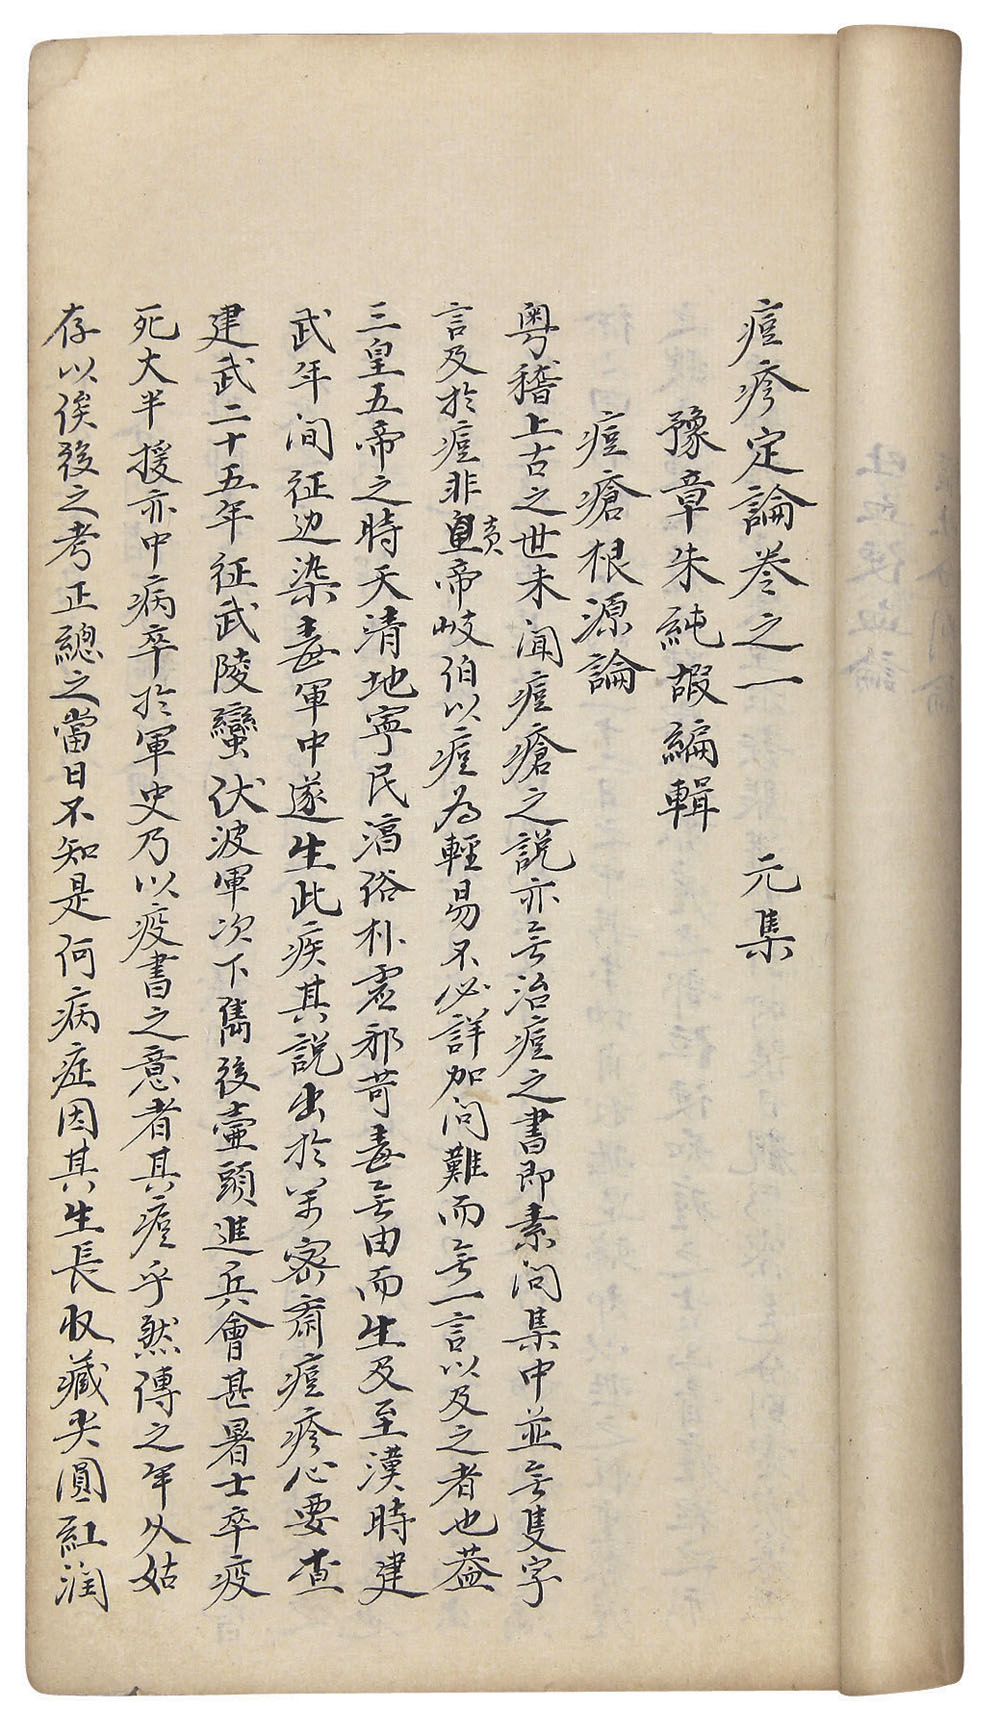 痘疹定論卷之一　元集
豫章朱純嘏編輯
痘瘡根源論
粤稽上古之世未聞痘瘡之説亦無治痘之書即素问集中並無隻字
言及於痘非皇帝岐伯以痘為輕易不必詳加问難而無一言以及之者也蓋
三皇五帝之時天清地寧民湻俗朴虚邪苛毒無由而生及至漢時建
武年间征边染毒軍中遂生此疾其説出於萬密斋痘疹心要查
建武二十五年征武陵蠻伏波軍次下雋後壷頭進兵會甚暑士卒疫
死大半援亦中病卒於軍史乃以疫書之意者其痘乎然傳之年久姑
存以俟後之考正總之當日不知是何病症因其生長收藏尖圓紅潤